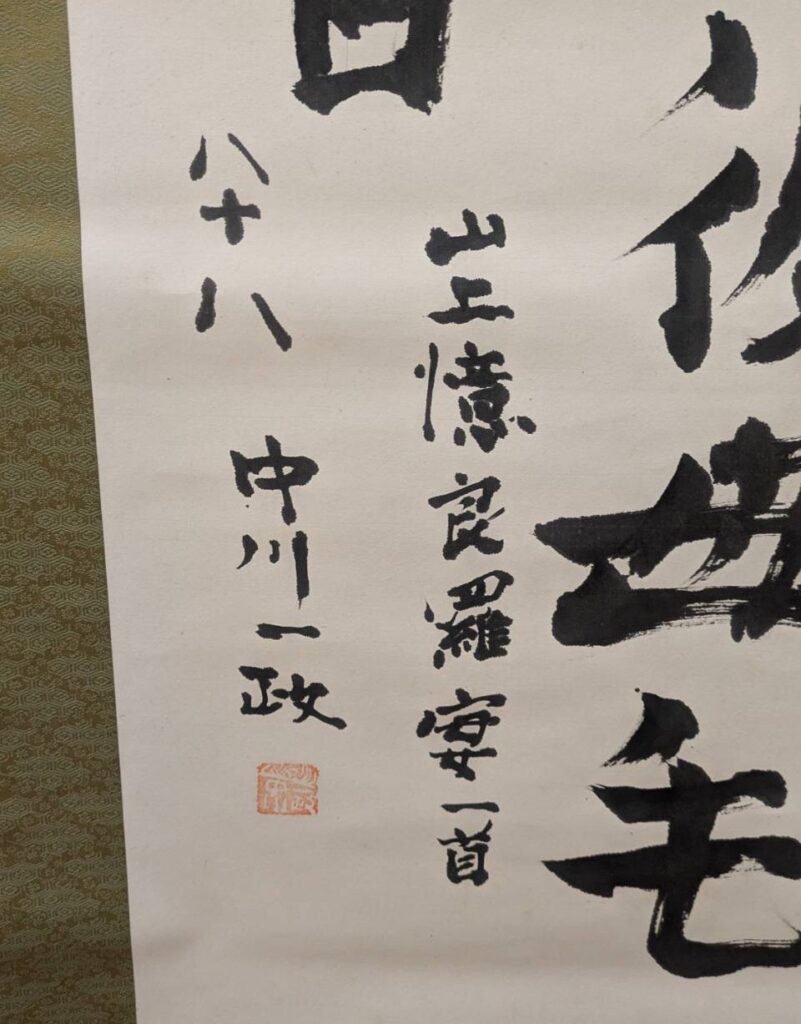 彼母毛
山上憶良羅宴一首
八十八 中川一政